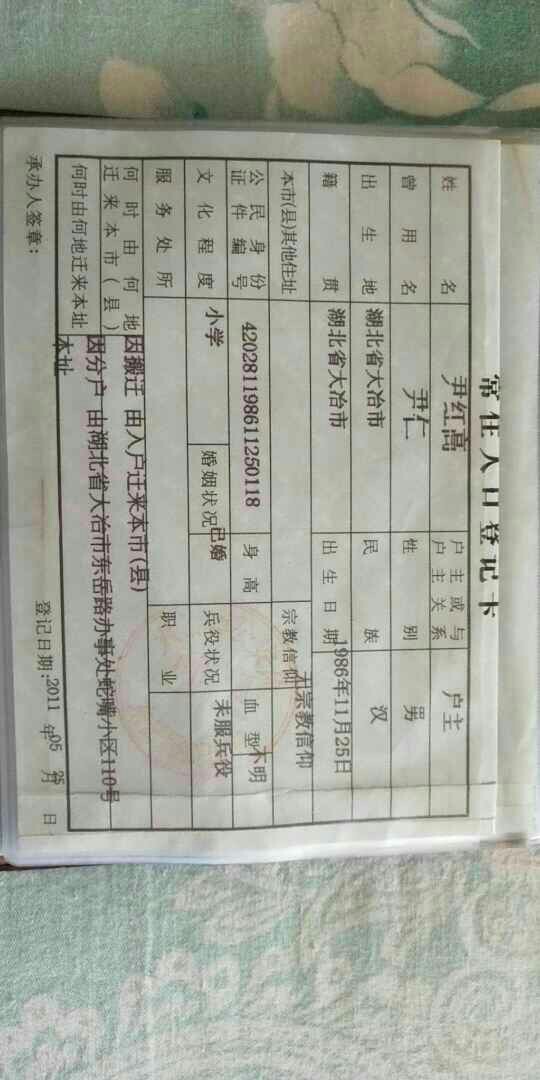 常住人口登记卡
姓名 尹红高 户主或与户主关系 户主
曾用名 尹仁 性别 男
出生地 湖北省大冶市 民族 汉
籍贯 湖北省大冶市 出生日期 1986年11月25日
本市(县)其他住址 宗教信仰 无宗教信仰
公民身份证件编号 420281198611250118 身高 血型 不明
文化程度 小学 婚姻状况 已婚 兵役状况 未服兵役
服务处所 职业
何时由何地迁来本市(县) 因搬迁 由入户迁来本市(县)
何时由何地迁来本址 因分户 由湖北省大冶市东岳路办事处蛇嘴小区110号
本址
承办人签章: 登记日期:2011年05月25日